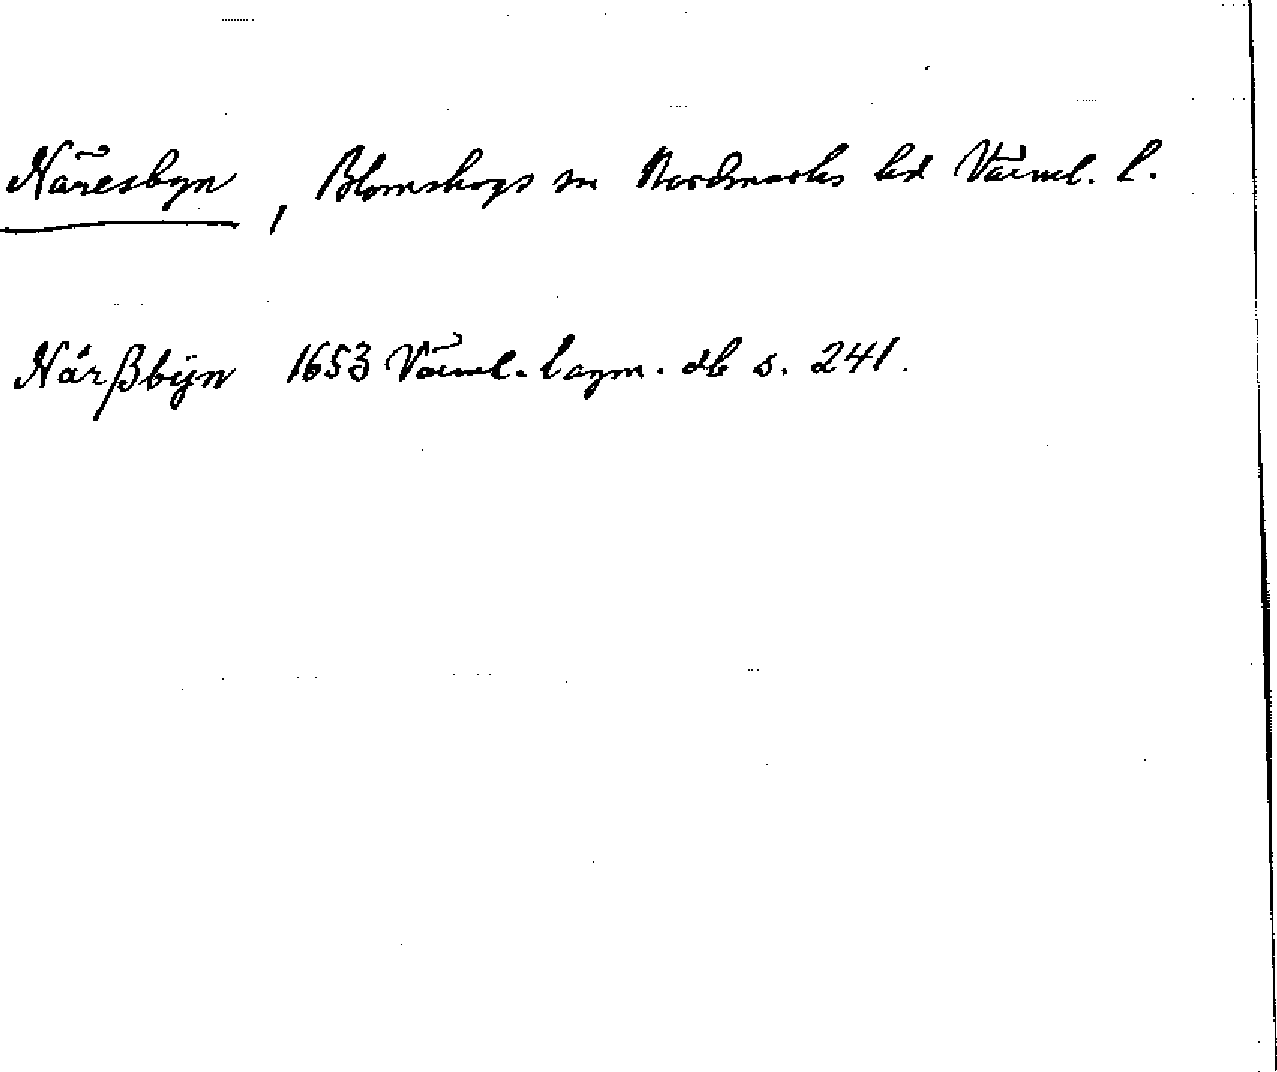 Näresbyn, Blomskogs sn Nordmarks hd Värml. l.
Nårßbÿn 1653 Värml. lagm. db s. 241.